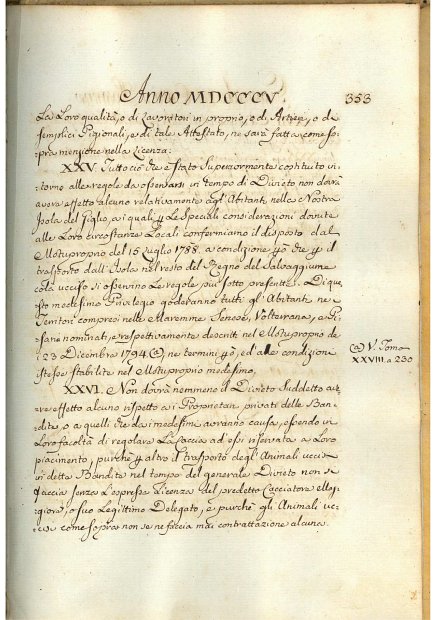 Anno MDCCCV. 353
La Loro qualità, o di Lavoratori in proprio, o di Artieri, o di
semplici Pigionali, e di tale Attestato, ne sarà fatta come so-
pra menzione nella Licenza:
XXV. Tutto ciò che è stato Superiormente costituito in-
torno alle regole da osservarsi in tempo di Divieto non dovrà
avere effetto alcuno relativamente agl'Abitanti nella Nostra
Isola del Giglio, a i quali p Le Speciali considerazioni dovute
alle Loro circostanze Locali confermiamo il disposto dal
Motuproprio del 15 Luglio 1788. a condizione però che p il
trasporto dall'Isola nel resto del Regno del Salvaggiume
colà ucciso si osservino Le regole più sotto prescritte. Di que-
sto medesimo Privilegio goderanno tutti gl'Abitanti ne
Territori compresi nelle Maremme Senese, Volterrana, e Pi-
sane nominati, e respettivamente descritti nel Motuproprio de
23 Dicembre 1794 (a) ne termini però, ed alle condizioni
stesse stabilite nel Motuproprio medesimo,
(a) V. Tomo
XXVIII. a 230
XXVI. Non dovrà nemmeno il Divieto Suddetto ave-
re effetto alcuno rispetto a i Proprietari privati delle Ban-
dite, o a quelli che da i medesimi avranno causa, essendo in
Loro facoltà di regolare La Caccia ad essi riservata a Loro
piacimento, purchè p altro il trasporto degl'Animali uccisi
in dette Bandite nel tempo del generale Divieto non si
faccia senza L'espressa Licenza del predetto Cacciatore Mag-
giore, o suo Legittimo Delegato, e purchè gli Animali uc-
cisi come sopra non se ne faccia mai contrattazione alcuna.